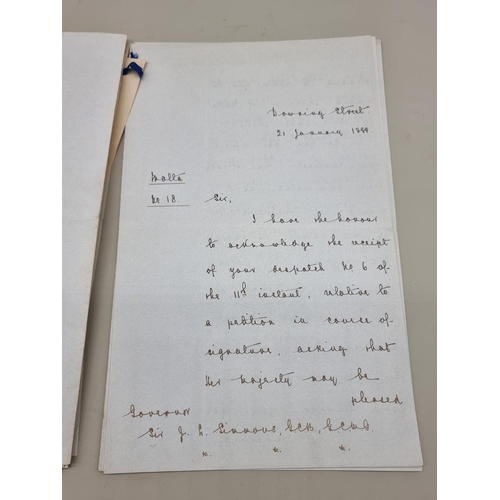 Downing Street
21 January 1888
Malta
No 18.
Sir,
I have the honour
to acknowledge the receipt
of your despatch No. 6 of
the 11th instant, relative to
a petition in course of
signature, asking that
Her Majesty may be
pleased
Governor
Sir J. L. Simmons, GCB, GCMG